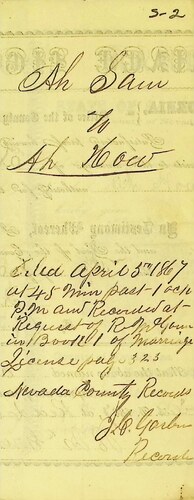 S-2
Ah Sam
to
Ah How
Filed April 5th 1867
at 45 Min past 1 ock
P.M and Recorded at
Request of R.
in Book 1 of Marriage
License page 323
Nevada County Records
Recorder